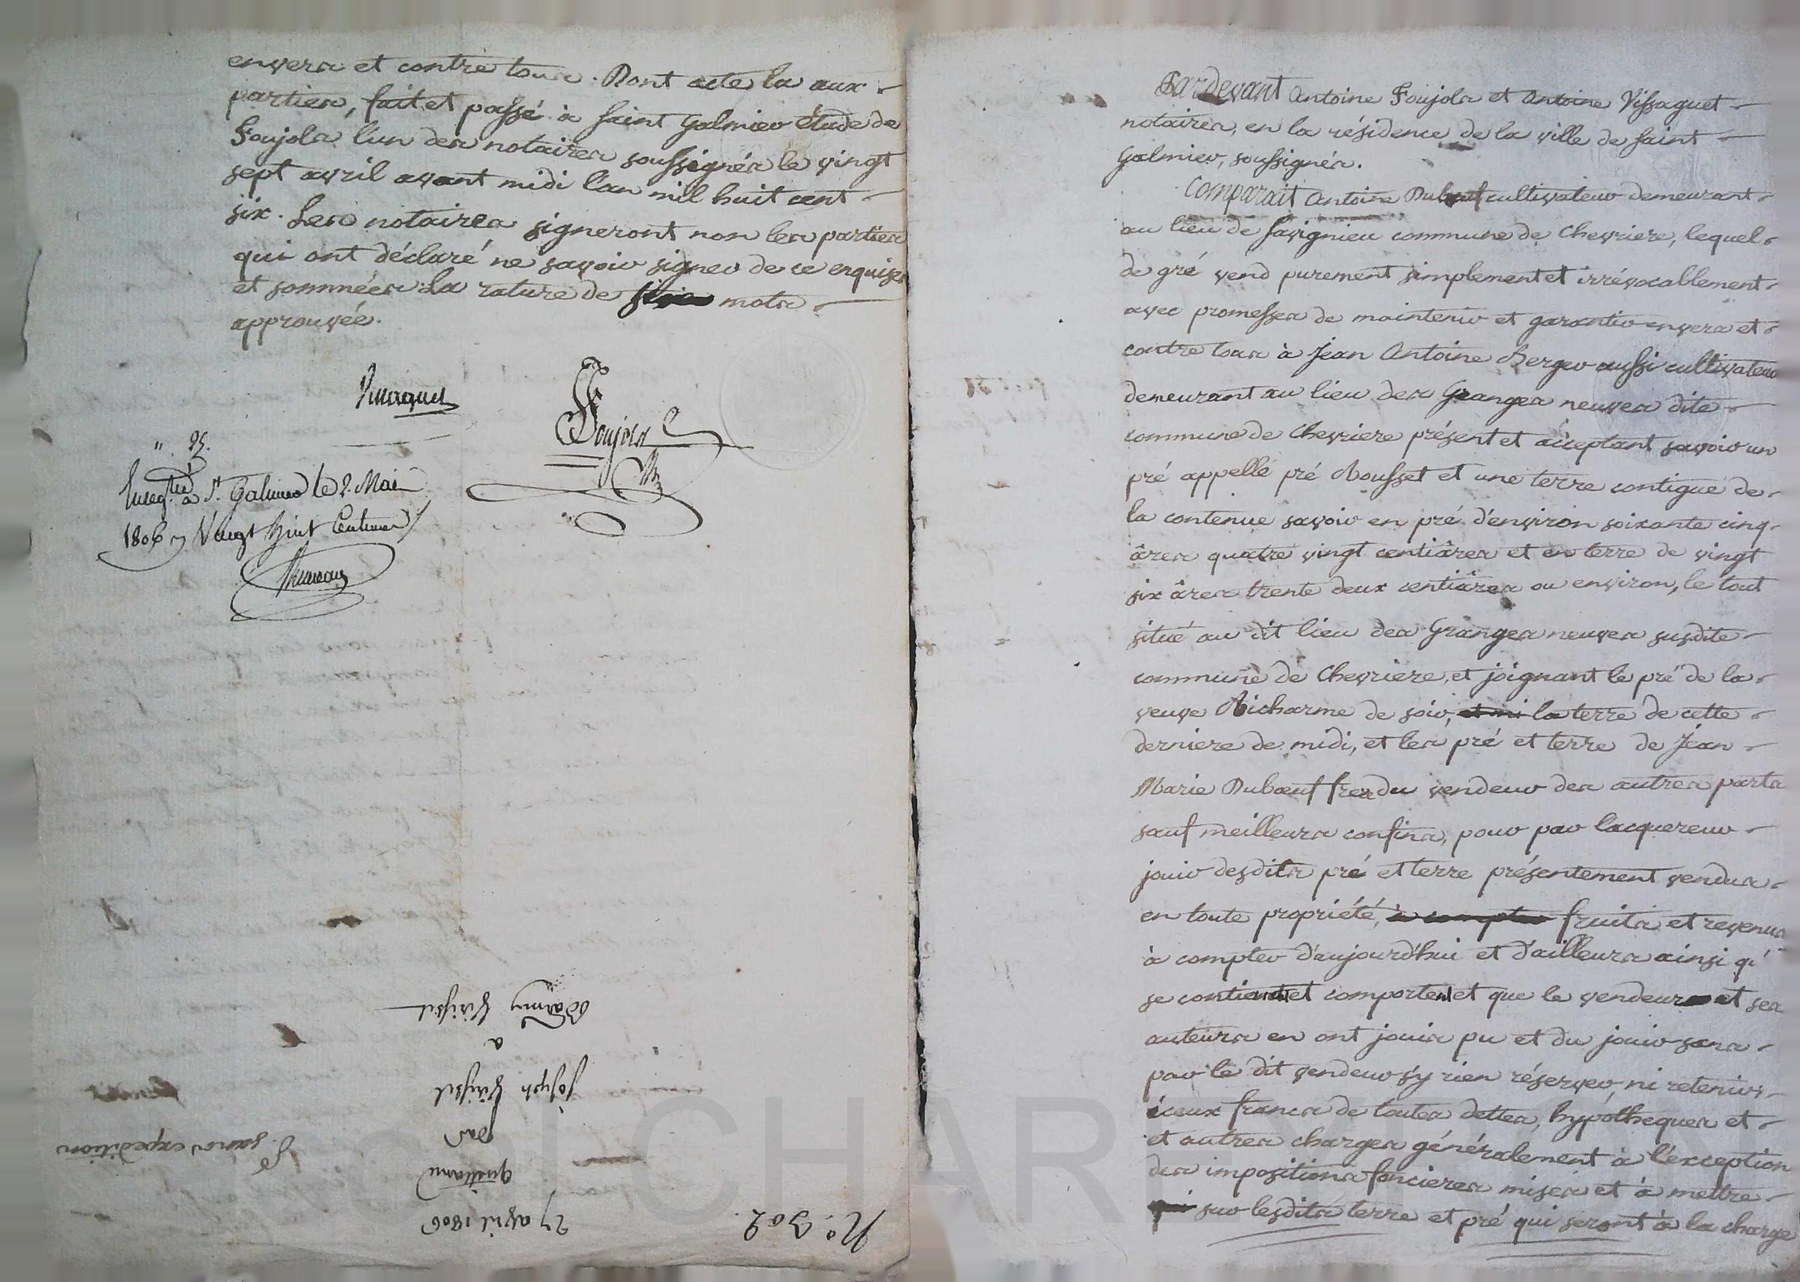 envers et contre tous. Dont acte lu aux
parties, fait et passé à Saint Galmier étude de
Foujols l'un des notaires soussignés le vingt
sept avril avant midi l'an mil huit cent
six. Les notaires signeront non les parties
qui ont déclaré ne savoir signer de ce enquises
et sommées la rature de mots
approuvée.
Vissaguet
Foujols
" 25.
Enregtré à St. Galmier le 2. Mai
1806 Vingt huit Centimes
N.° 302.
27 avril 1806
quittance
par
Joseph
a
D. sans expédition
Pardevant Antoine Foujols et Antoine Vissaguet
notaires, en la résidence de la ville de Saint
Galmier, soussignés.
Comparait Antoine Dubœuf cultivateur demeurant
au lieu de Savignieu commune de Chevriere, lequel
de gré vend purement simplement et irrévocablement
avec promesses de maintenir et garantir envers et
contre tous à Jean Antoine Berger aussi cultivateur
demeurant au lieu des Granges neuves dite
commune de Chevriere présent et acceptant savoir un
pré appellé pré Rousset et une terre contigue de
la contenue savoir en pré d'environ soixante cinq
âres quatre vingt centiâres et en terre de vingt
six âres trente deux centiâres ou environ, le tout
situé au dit lieu des Granges neuves susdite
commune de Chevriere, et joignant le pré de la
veuve Richarme de soir, et mi la terre de cette
derniere de midi, et les pré et terre de Jean
Marie Dubœuf frere du vendeur des autres parts
sauf meilleurs confins, pour par lacquereur
jouir desdits pré et terre présentement vendus
en toute propriété, à compter fruits et revenus
à compter d'aujourd'hui et d'ailleurs ainsi qu'
se contienent et comportent et que le vendeur et ses
auteurs en ont jouis pu et du jouir sans
par le dit vendeur s'y rien réserver, ni retenir
iceux francs de toutes dettes, hypotheques et
et autres charges généralement à l'exception
des impositions foncieres mises et à mettre
qui sur lesdits terre et pré qui seront à la charge